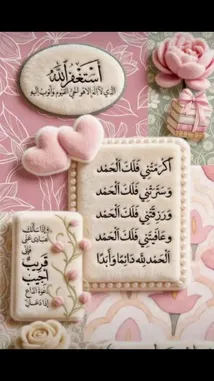 أَسْتَغْفِرُ اللّٰه
الَّذِي لَا إِلٰهَ إِلَّا هُوَ الْحَيُّ الْقَيُّوم وَأَتُوبُ إِلَيْه
أَكْرَمْتَنِي فَلَكَ الْحَمْد
وَسَتَرْتَنِي فَلَكَ الْحَمْد
وَرَزَقْتَنِي فَلَكَ الْحَمْد
وَعَافَيْتَنِي فَلَكَ الْحَمْد
الْحَمْدُ لِلّٰه دَائِمًا وَأَبَدًا
وَإِذَا سَأَلَكَ
عِبَادِي عَنِّي
قَرِيبٌ
أُجِيبُ
دَعْوَةَ الدَّاعِ
إِذَا دَعَانِ